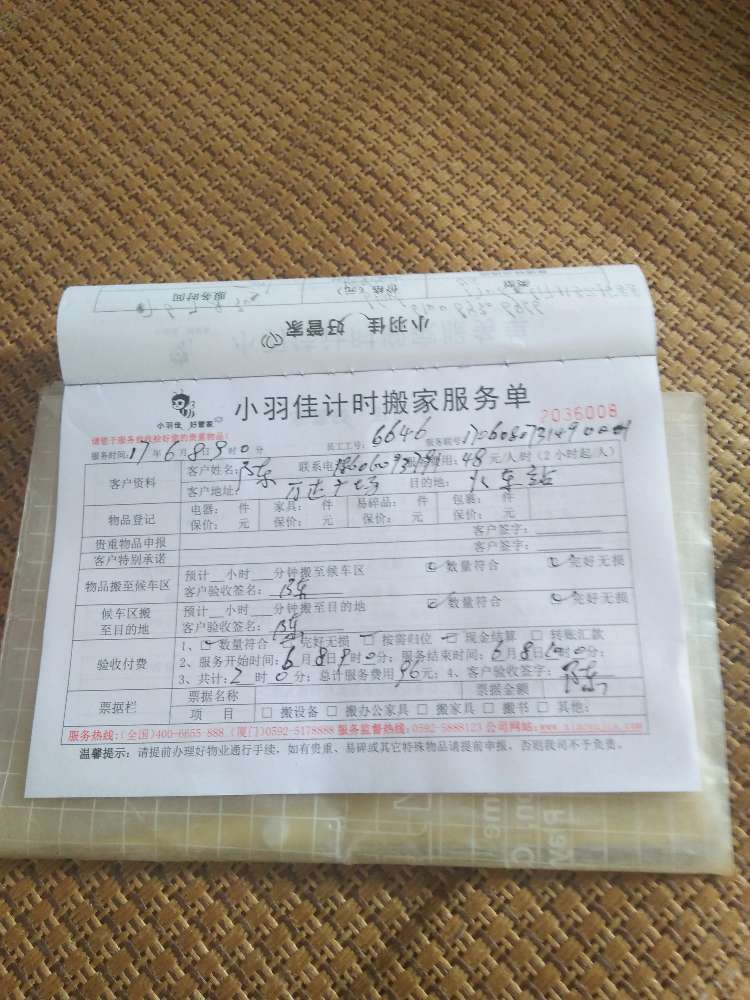 服务时间
价格(元)
小羽佳 好管家
小羽佳 好管家
小羽佳计时搬家服务单
2036008
请您于服务员收捡好您的贵重物品!
服务时间:17年6月8日9时0分 员工工号:6646 服务账号:
客户资料
客户姓名:陈东 联系电 用:48元/人时(2小时起/人)
客户地址:万达广场 目的地:火车站
物品登记
电器: 件 家具: 件 易碎品: 件 包裹: 件
保价: 元 保价: 元 保价: 元 保价: 元
贵重物品申报 客户签字:
客户特别承诺 客户签字:
物品搬至候车区
预计__小时___分钟搬至候车区 数量符合 完好无损
客户验收签名:陈东
候车区搬至目的地
预计__小时___分钟搬至目的地 数量符合 完好无损
客户验收签名:陈东
验收付费
1、□数量符合 □完好无损 □按需归位 □现金结算 □转账汇款
2、服务开始时间:6月8日9时0分;服务结束时间:6月8日 时0分;
3、共计:2时0分;总计服务费用96元;4、客户验收签字:陈东
票据栏
票据名称 票据金额
项 目 □搬设备 □搬办公家具 □搬家具 □搬书 □其他:
服务热线:(全国)400-6655-888 (厦门)0592-5178888 服务监督热线:0592-5888123 公司网站:
温馨提示:请提前办理好物业通行手续,如有贵重、易碎或其它特殊物品请提前申报,否则我司不予负责。